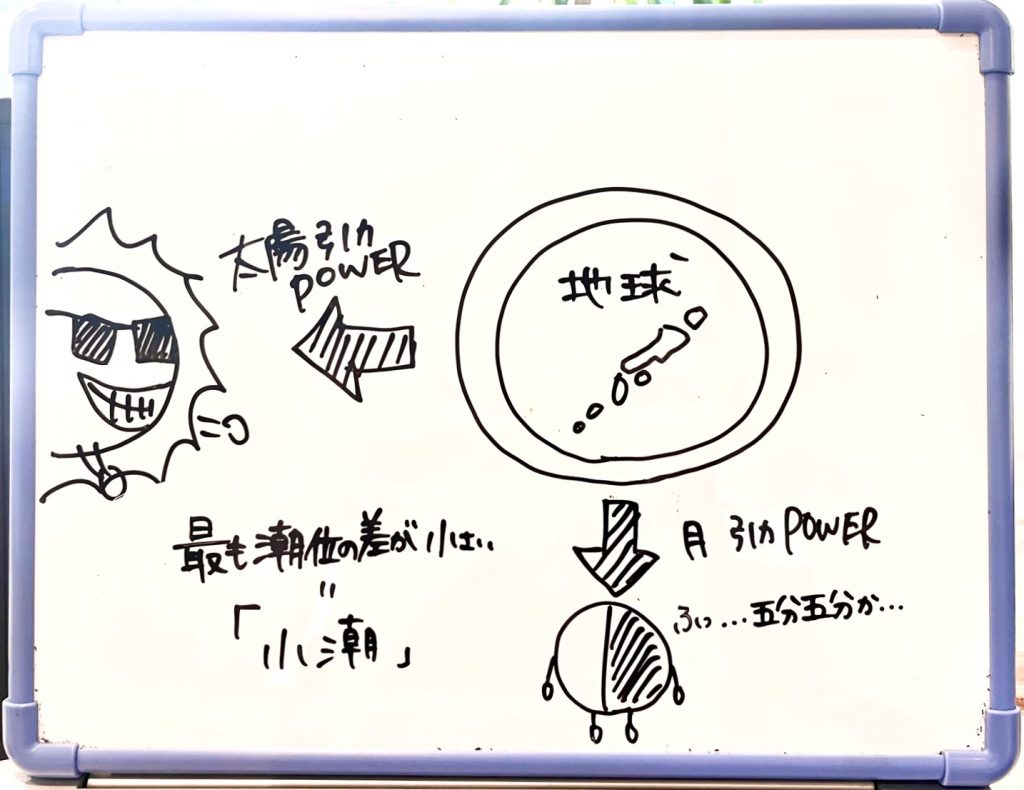 太陽引力
POWER
地球
最も潮位の差が小さい
=
「小潮」
月 引力 POWER
ふっ…五分五分か…